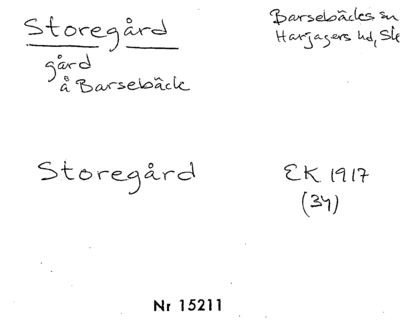 Storegård
gård
å Barsebäck
Barsebäcks sn
Harjagers hd, Sk
Storegård
EK 1917
(34)
Nr 15211